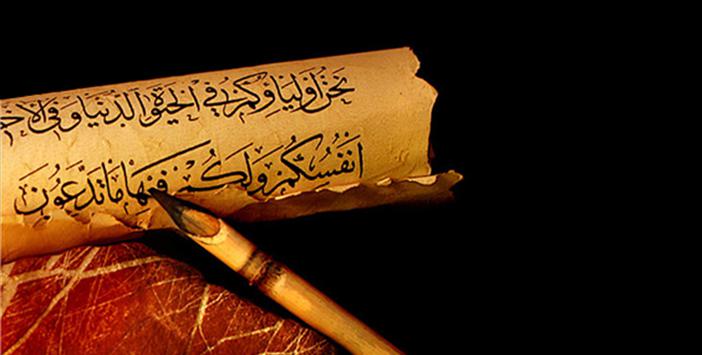 نَحْنُ أَوْلِيَاؤُكُمْ فِي الْحَيَوةِ الدُّنْيَا وَفِي الْآخِ
أَنْفُسُكُمْ وَلَكُمْ فِيهَا مَا تَدَّعُونَ